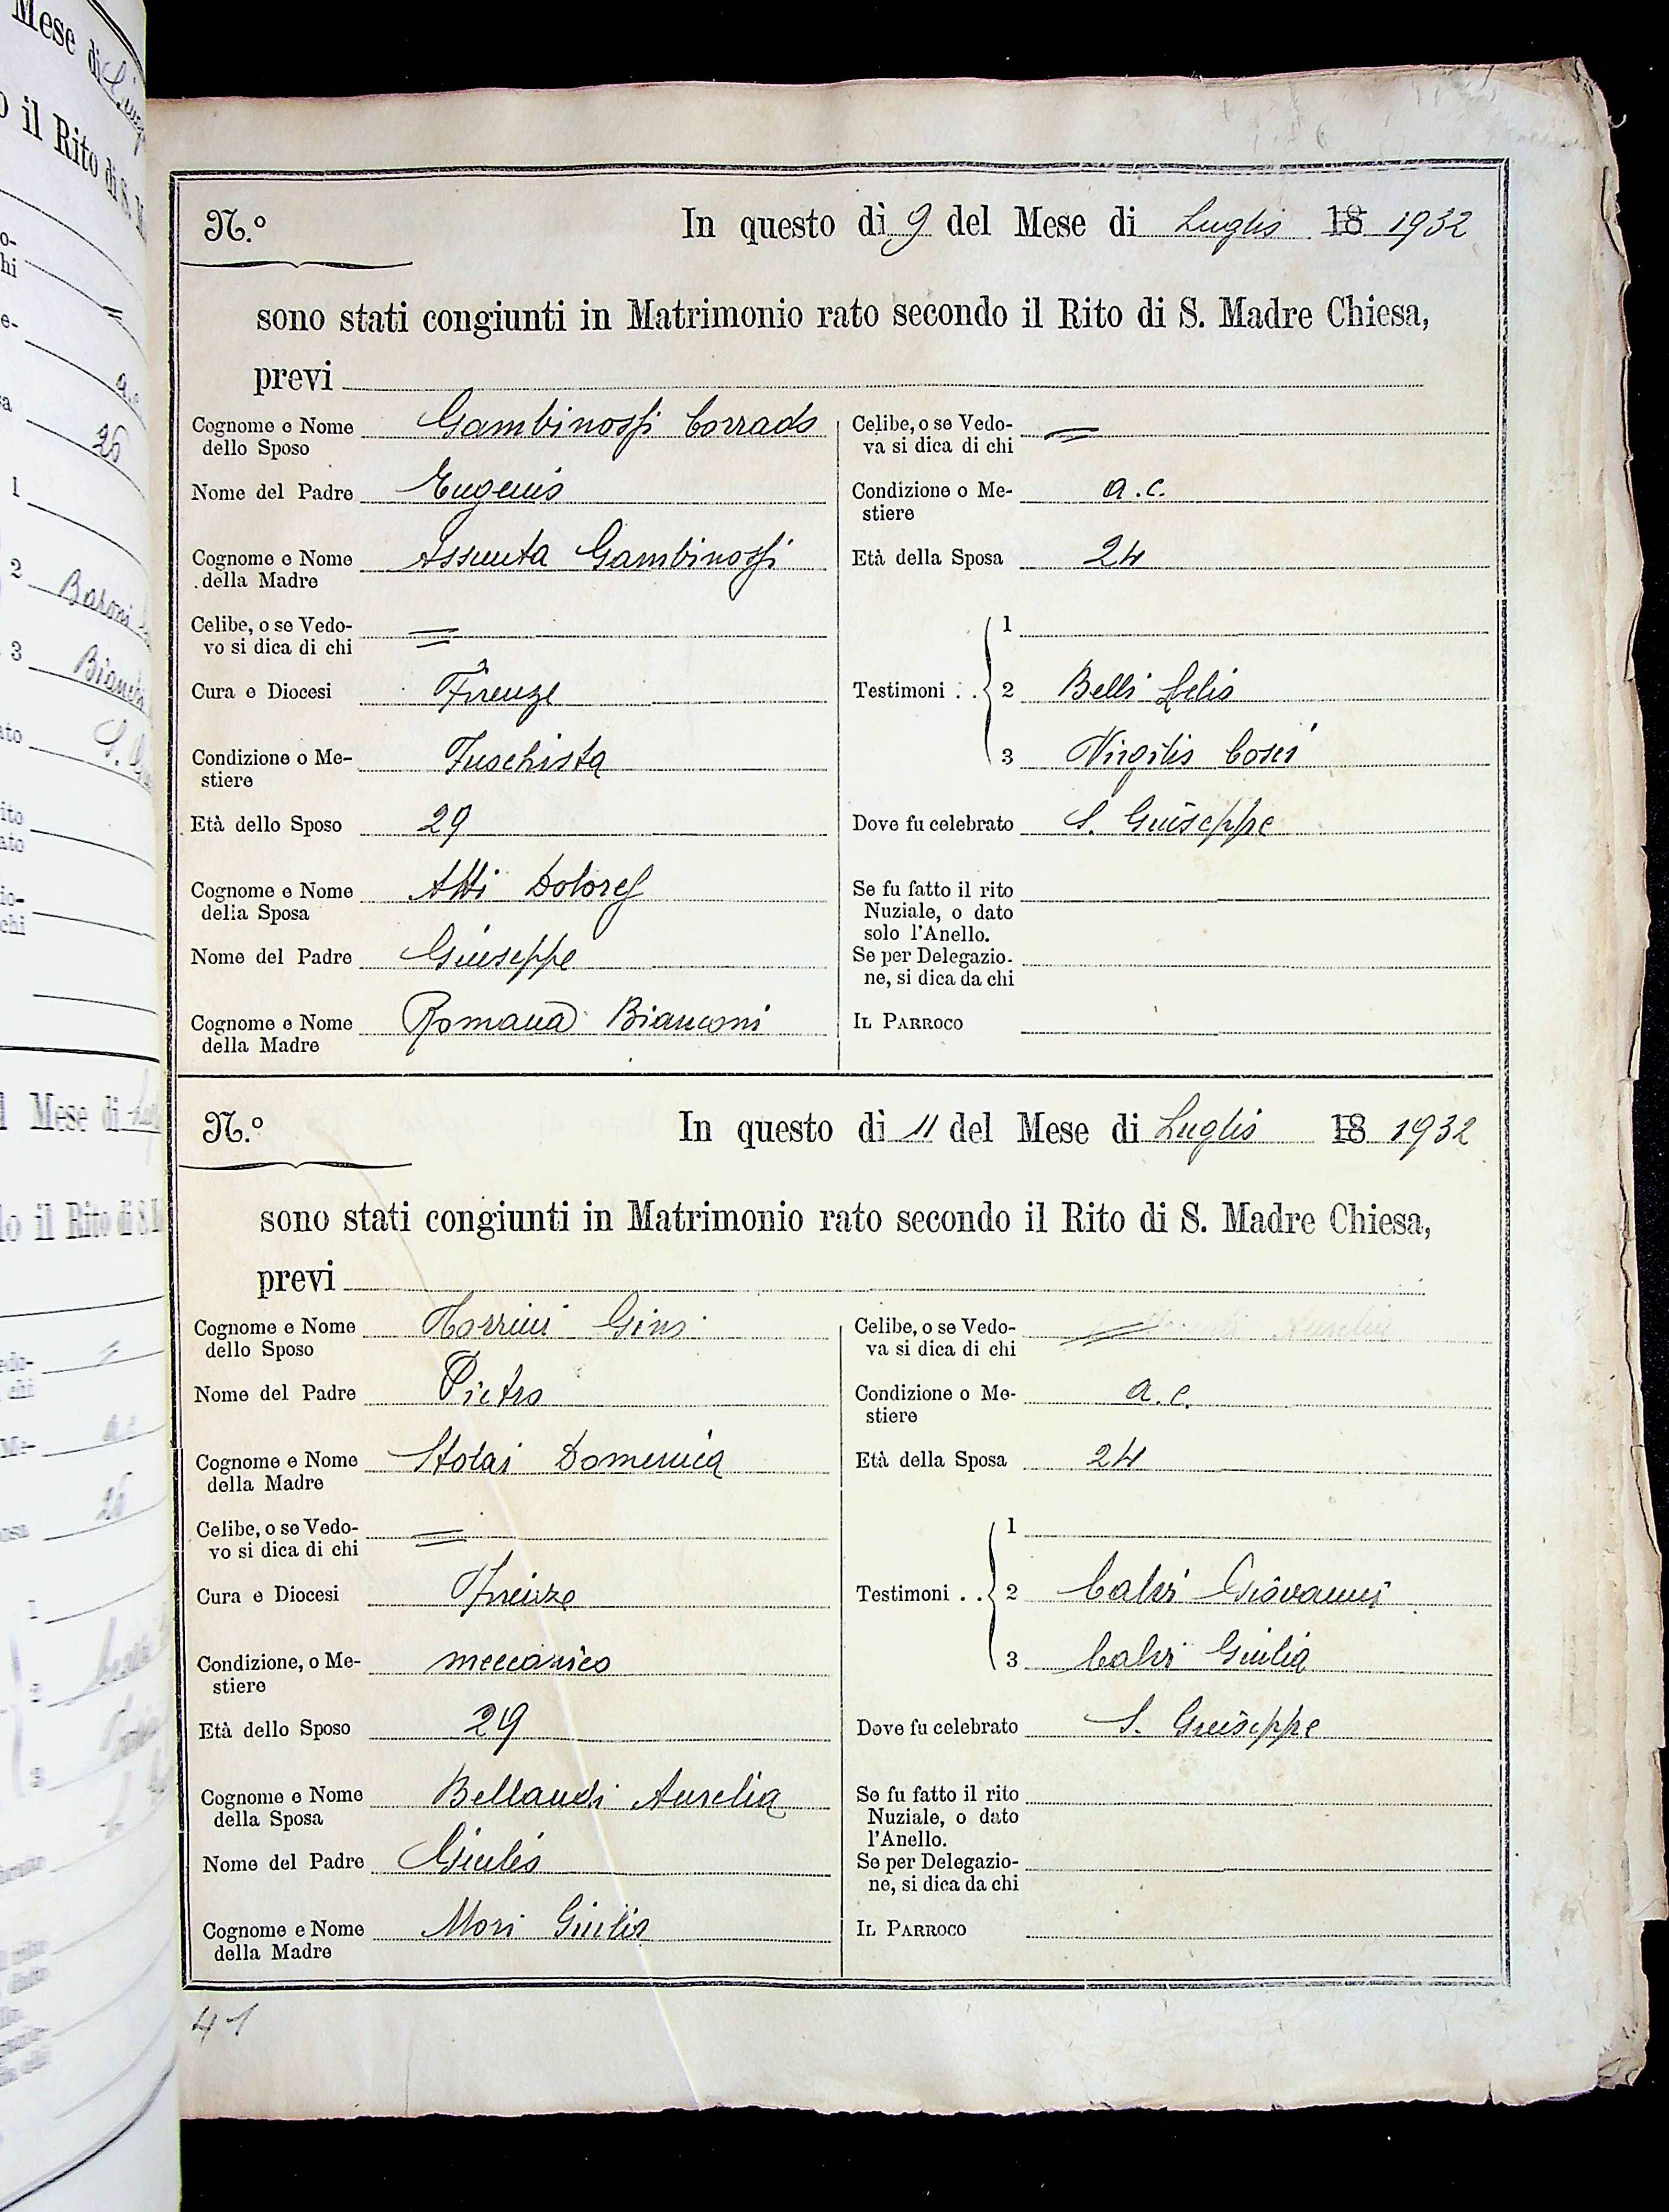 Mese di
o il Rito di S. M
26
1
2 Baroni
3 Bianchi
Mese di
lo il Rito di S. M
26
N.º In questo dì 9 del Mese di Luglio 18 1932
sono stati congiunti in Matrimonio rato secondo il Rito di S. Madre Chiesa,
previ
Cognome e Nome dello Sposo Gambinossi Corrado
Nome del Padre Eugenio
Cognome e Nome della Madre Assunta Gambinossi
Celibe, o se Vedo-
vo si dica di chi =
Cura e Diocesi Firenze
Condizione o Me-
stiere Fuochista
Età dello Sposo 29
Cognome e Nome della Sposa Atti Dolores
Nome del Padre Giuseppe
Cognome e Nome della Madre Romana Bianconi
Celibe, o se Vedo-
va si dica di chi =
Condizione o Me-
stiere a.c.
Età della Sposa 24
Testimoni . . 1
2 Belli Lelio
3 Virgilio Cosci
Dove fu celebrato S. Giuseppe
Se fu fatto il rito
Nuziale, o dato
solo l'Anello.
Se per Delegazio-
ne, si dica da chi
IL PARROCO
N.º In questo dì 11 del Mese di Luglio 18 1932
sono stati congiunti in Matrimonio rato secondo il Rito di S. Madre Chiesa,
previ
Cognome e Nome dello Sposo Torrini Gino
Nome del Padre Pietro
Cognome e Nome della Madre Domenica
Celibe, o se Vedo-
vo si dica di chi =
Cura e Diocesi Firenze
Condizione, o Me-
stiere meccanico
Età dello Sposo 29
Cognome e Nome della Sposa Bellandi Aurelia
Nome del Padre Giulio
Cognome e Nome della Madre Mori Giulia
Celibe, o se Vedo-
va si dica di chi =
Condizione o Me-
stiere a.c.
Età della Sposa 24
Testimoni . . 1
2 Calvi Giovanni
3 Calvi Giulia
Dove fu celebrato S. Giuseppe
Se fu fatto il rito
Nuziale, o dato
l'Anello.
Se per Delegazio-
ne, si dica da chi
IL PARROCO
41